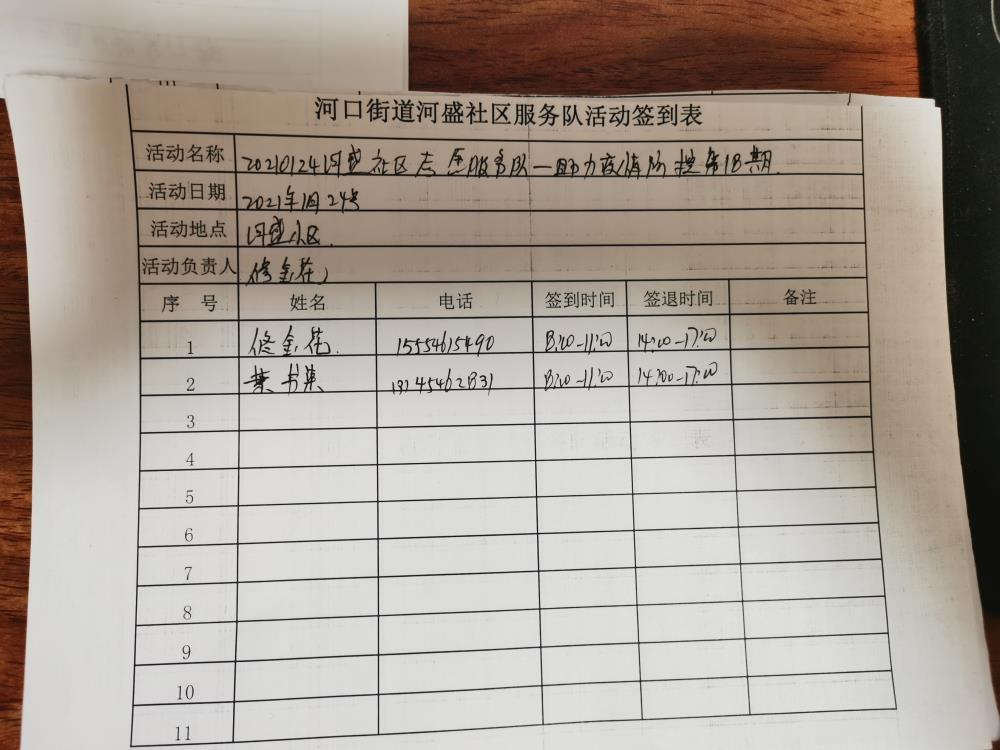 河口街道河盛社区服务队活动签到表
活动名称 20210124河盛社区志愿服务队—助力疫情防控第18期
活动日期 2021年1月24号
活动地点 河盛小区.
活动负责人 修金花
序 号 姓名 电话 签到时间 签退时间 备注
1 修金花. 15554615490 8:00-11:00 14:00-17:00
2 书 8:00-11:00 14:00-17:00
3
4
5
6
7
8
9
10
11